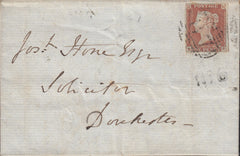 Josh Stone Esqr
Solicitor
Dorchester